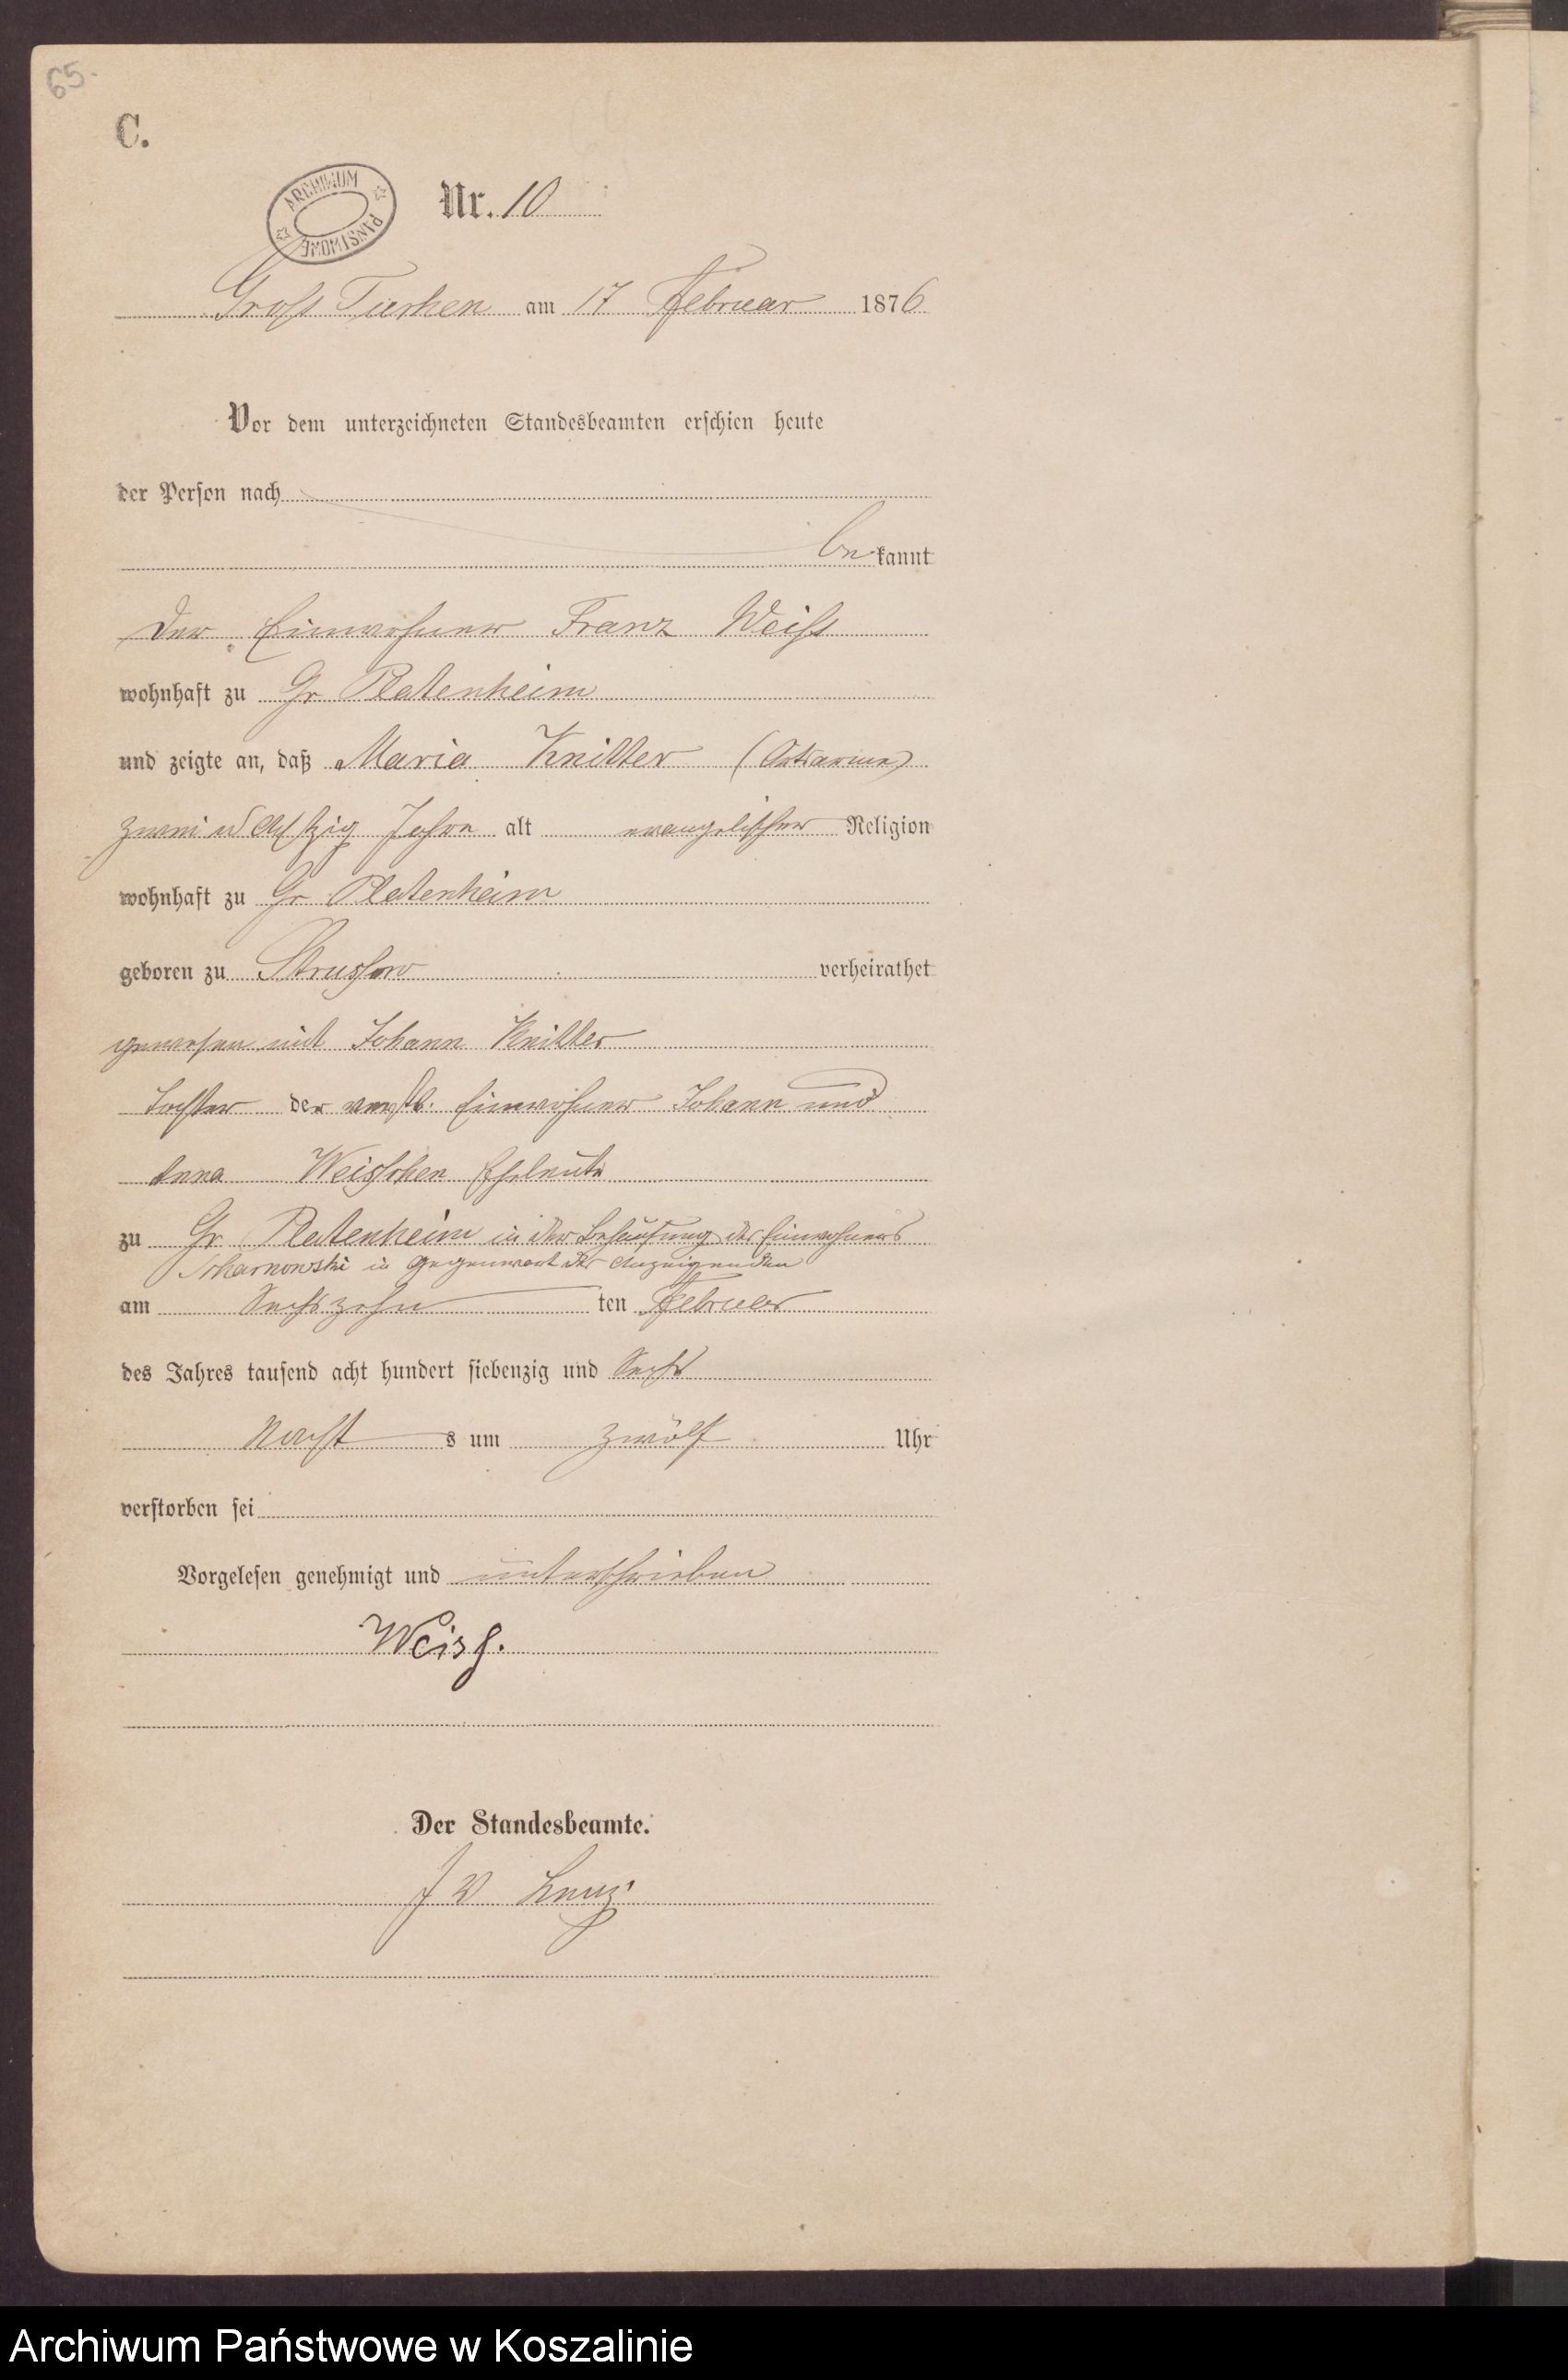 65.
C.
ARCHIWUM PAŃSTWOWE
Nr. 10
Groß Tuchen am 17 Februar 1876
Vor dem unterzeichneten Standesbeamten erschien heute
der Person nach
bekannt
der Einwohner Franz Weiß
wohnhaft zu Gr Platenheim
und zeigte an, daß Maria Knitter (Ortsarme)
zwei u Achtzig Jahre alt evangelischer Religion
wohnhaft zu Gr Platenheim
geboren zu Strussow verheirathet
gewesen mit Johann Knitter
Tochter der verstb. Einwohner Johann und
Anna Weißschen Eheleute
zu Gr Platenheim in der Behausung des Einwohners
in Gegenwart des Anzeigenden
am Sechszehn ten Februar
des Jahres tausend acht hundert siebenzig und Sechs
Nacht s um zwölf Uhr
verstorben sei
Vorgelesen genehmigt und unterschrieben
Weiß.
Der Standesbeamte.
Archiwum Państwowe w Koszalinie